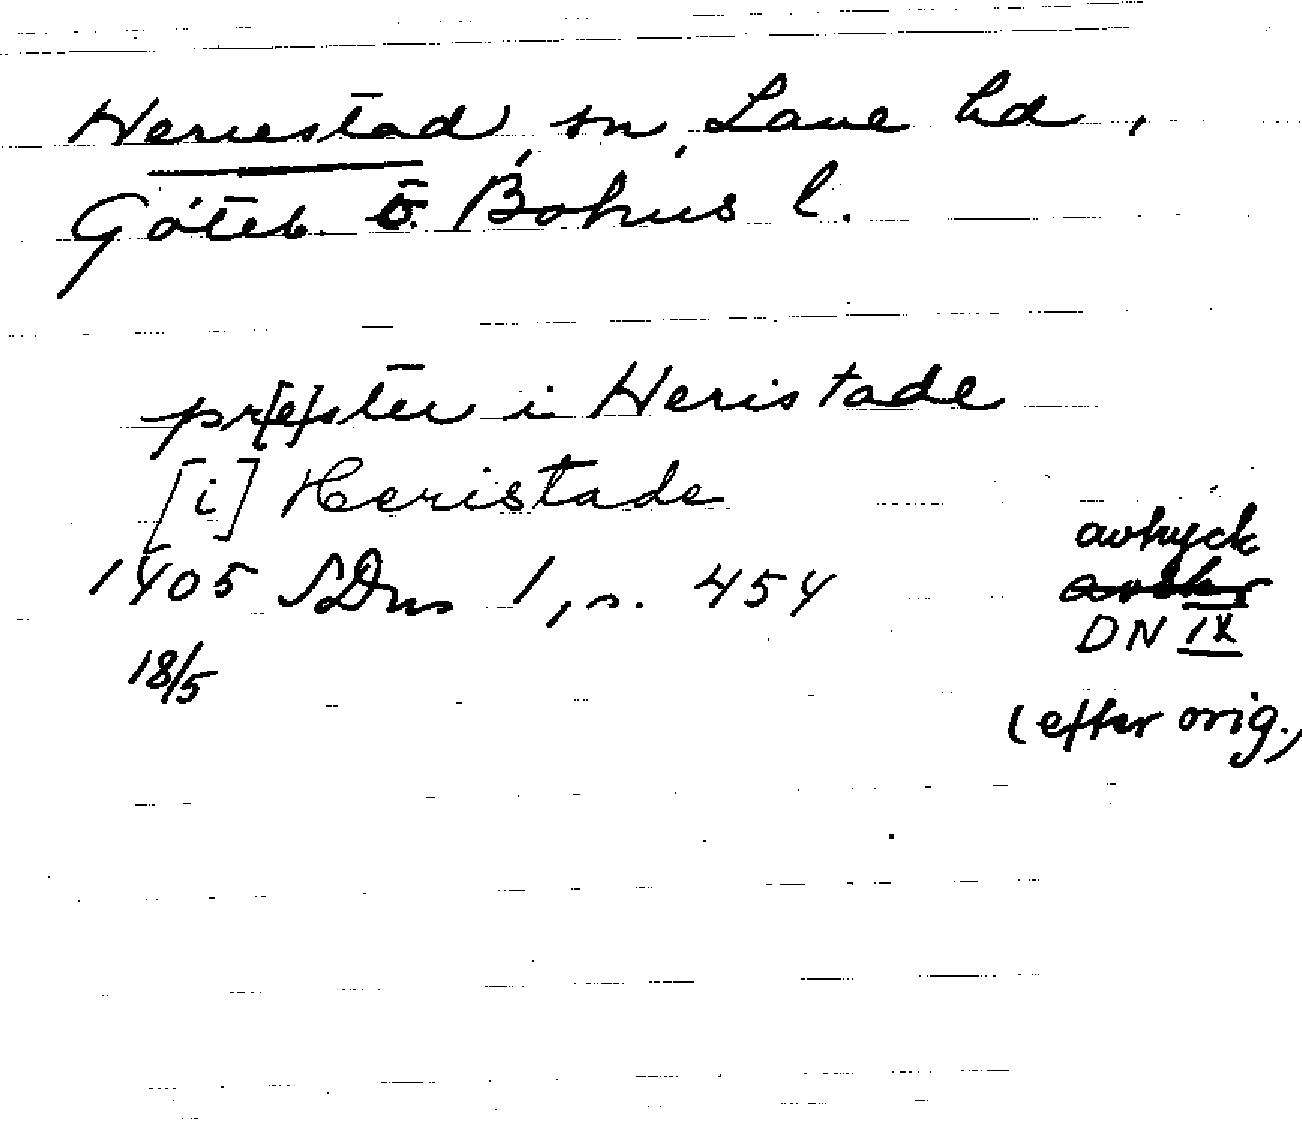 Herrestad, sn, Lane hd,
Göteb. o. Bohus l.
pr[e]ster i Heristade
[i] Heristade
1405 SDns 1, s. 454
18/5
avtryck
DN IX
(efter orig.)